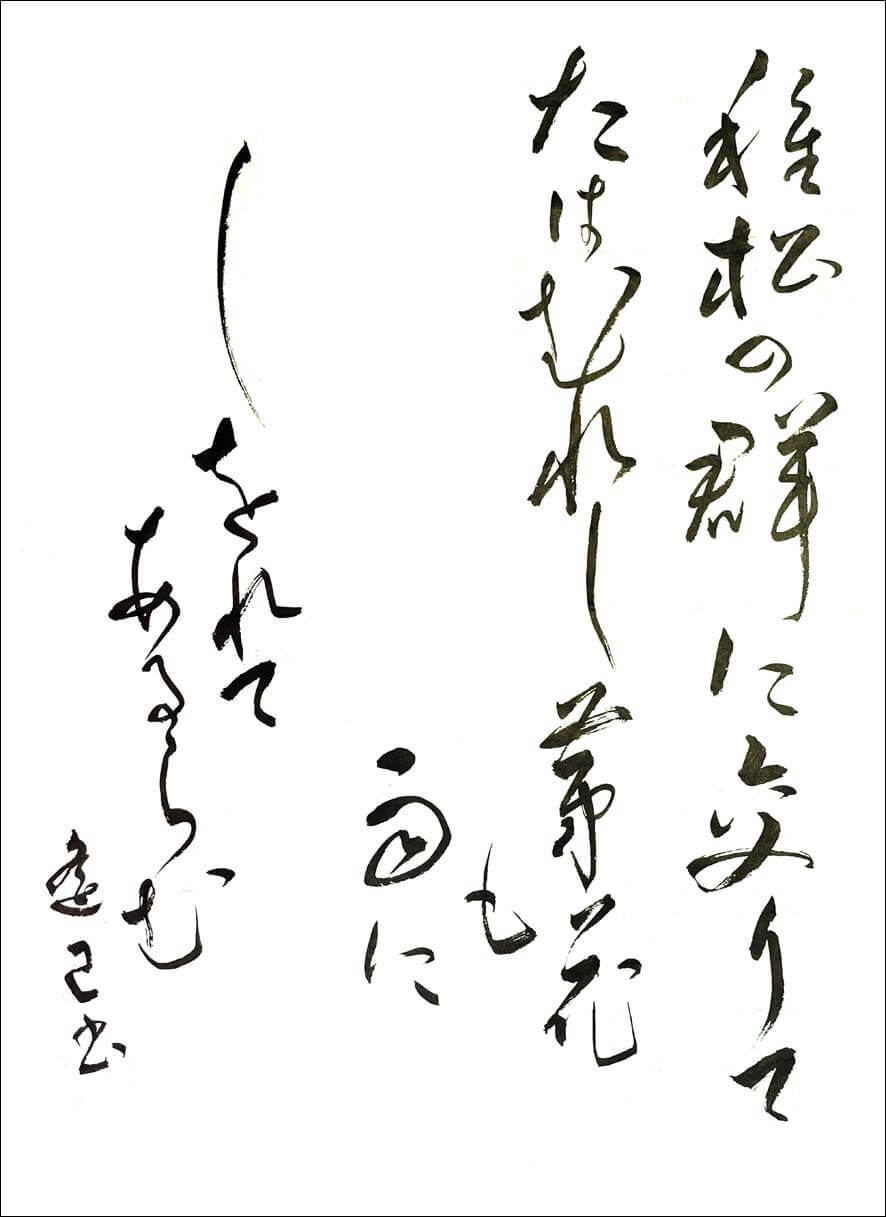 稚松の群に交りて
たはむれし茅花
も
雨に
しをれて
あるらむ
遙己書